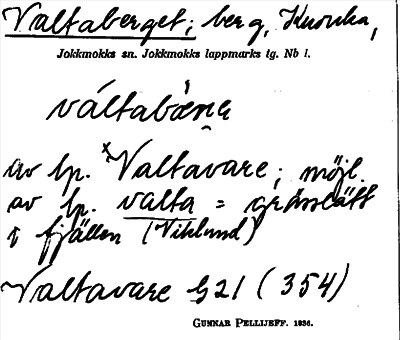 Valtaberget; berg, Kuouka,
Jokkmokks sn. Jokkmokks lappmarks tg. Nb l.
váltabærɛ
av lp. ˣValtavare; möjl.
av lp. valta = grässlätt
i fjällen (Wiklund)
Valtavare G21 (354)
GUNNAR PELLIJEFF. 1936.